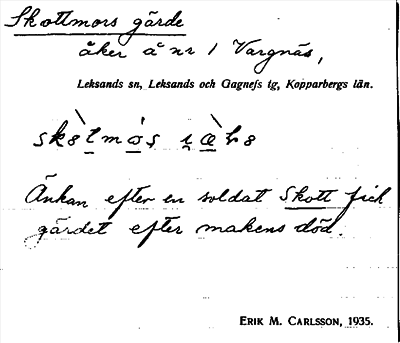 Skottmors gärde
åker å nr 1 Vargnäs,
Leksands sn, Leksands och Gagnefs tg, Kopparbergs län.
Änkan efter en soldat Skott fick
gärdet efter makens död.
ERIK M. CARLSSON, 1935.